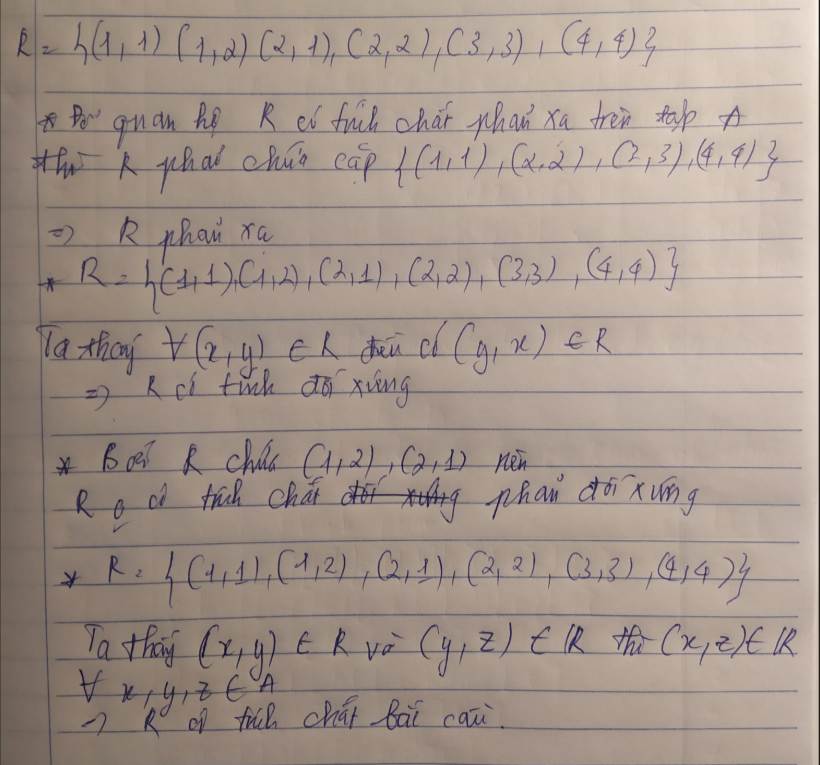 R = {(1,1) (1,2) (2,1), (2,2), (3,3), (4,4)}
* Để quan hệ R có tính chất phản xạ trên tập A
thì R phải chứa cặp {(1,1), (2,2), (3,3), (4,4)}
=> R phản xạ
* R = {(1,1),(1,2), (2,1), (2,2), (3,3), (4,4)}
Ta thấy ∀(x,y) ∈ R đều có (y,x) ∈ R
=> R có tính đối xứng
* Bởi R chứa (1,2), (2,1) nên
R o có tính chất đối xứng phản đối xứng
* R = {(1,1), (1,2), (2,1), (2,2), (3,3), (4,4)}
Ta thấy (x,y) ∈ R và (y,z) ∈ R thì (x,z) ∈ R
∀ x,y,z ∈ A
=> R có tính chất bắc cầu.